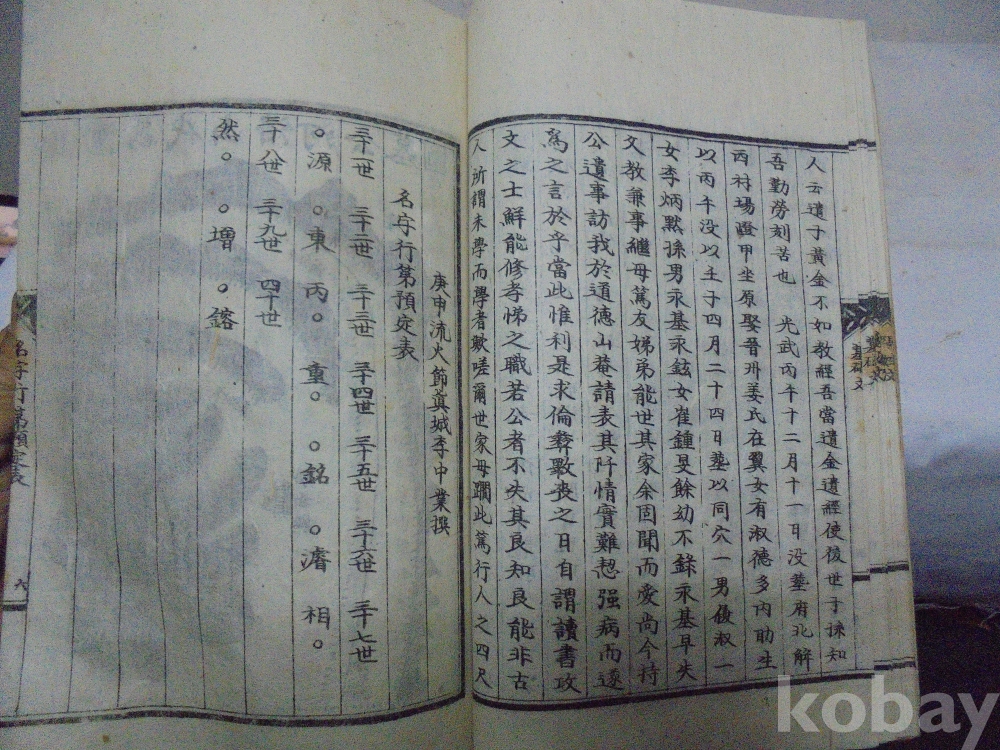 人云遺子黃金不如敎經吾當遺金遺經使後世子孫知
吾勤勞刻苦也 光武丙午十二月十一日没墓府北解
西村場嶝甲坐原娶晉州姜氏在翼女有淑德多内助生
以丙午没以壬子四月二十四日墓以同穴一男俊淑一
女李炳黙孫男永基永鉉女崔鍾旻餘幼不錄永基早失
父敎兼事繼母篤友娣弟能世其家余固聞而愛尚今持
公遺事訪我於道德山菴請表其阡情實難恝强病而遂
爲之言於乎當此惟利是求倫彝斁喪之日自謂讀書攻
文之士鮮能修孝悌之職若公者不失其良知良能非古
人所謂未學而學者歟嗟爾世家毋躪此篤行人之四尺
庚申流火節眞城李中業撰
名字行第預定表
三十一世 三十二世 三十三世 三十四世 三十五世 三十六世 三十七世
○源 ○東 丙○ 重○ ○銘 ○濬 相○
三十八世 三十九世 四十世
然○ ○增 ○鎔
名字行第預定表
六
kobay